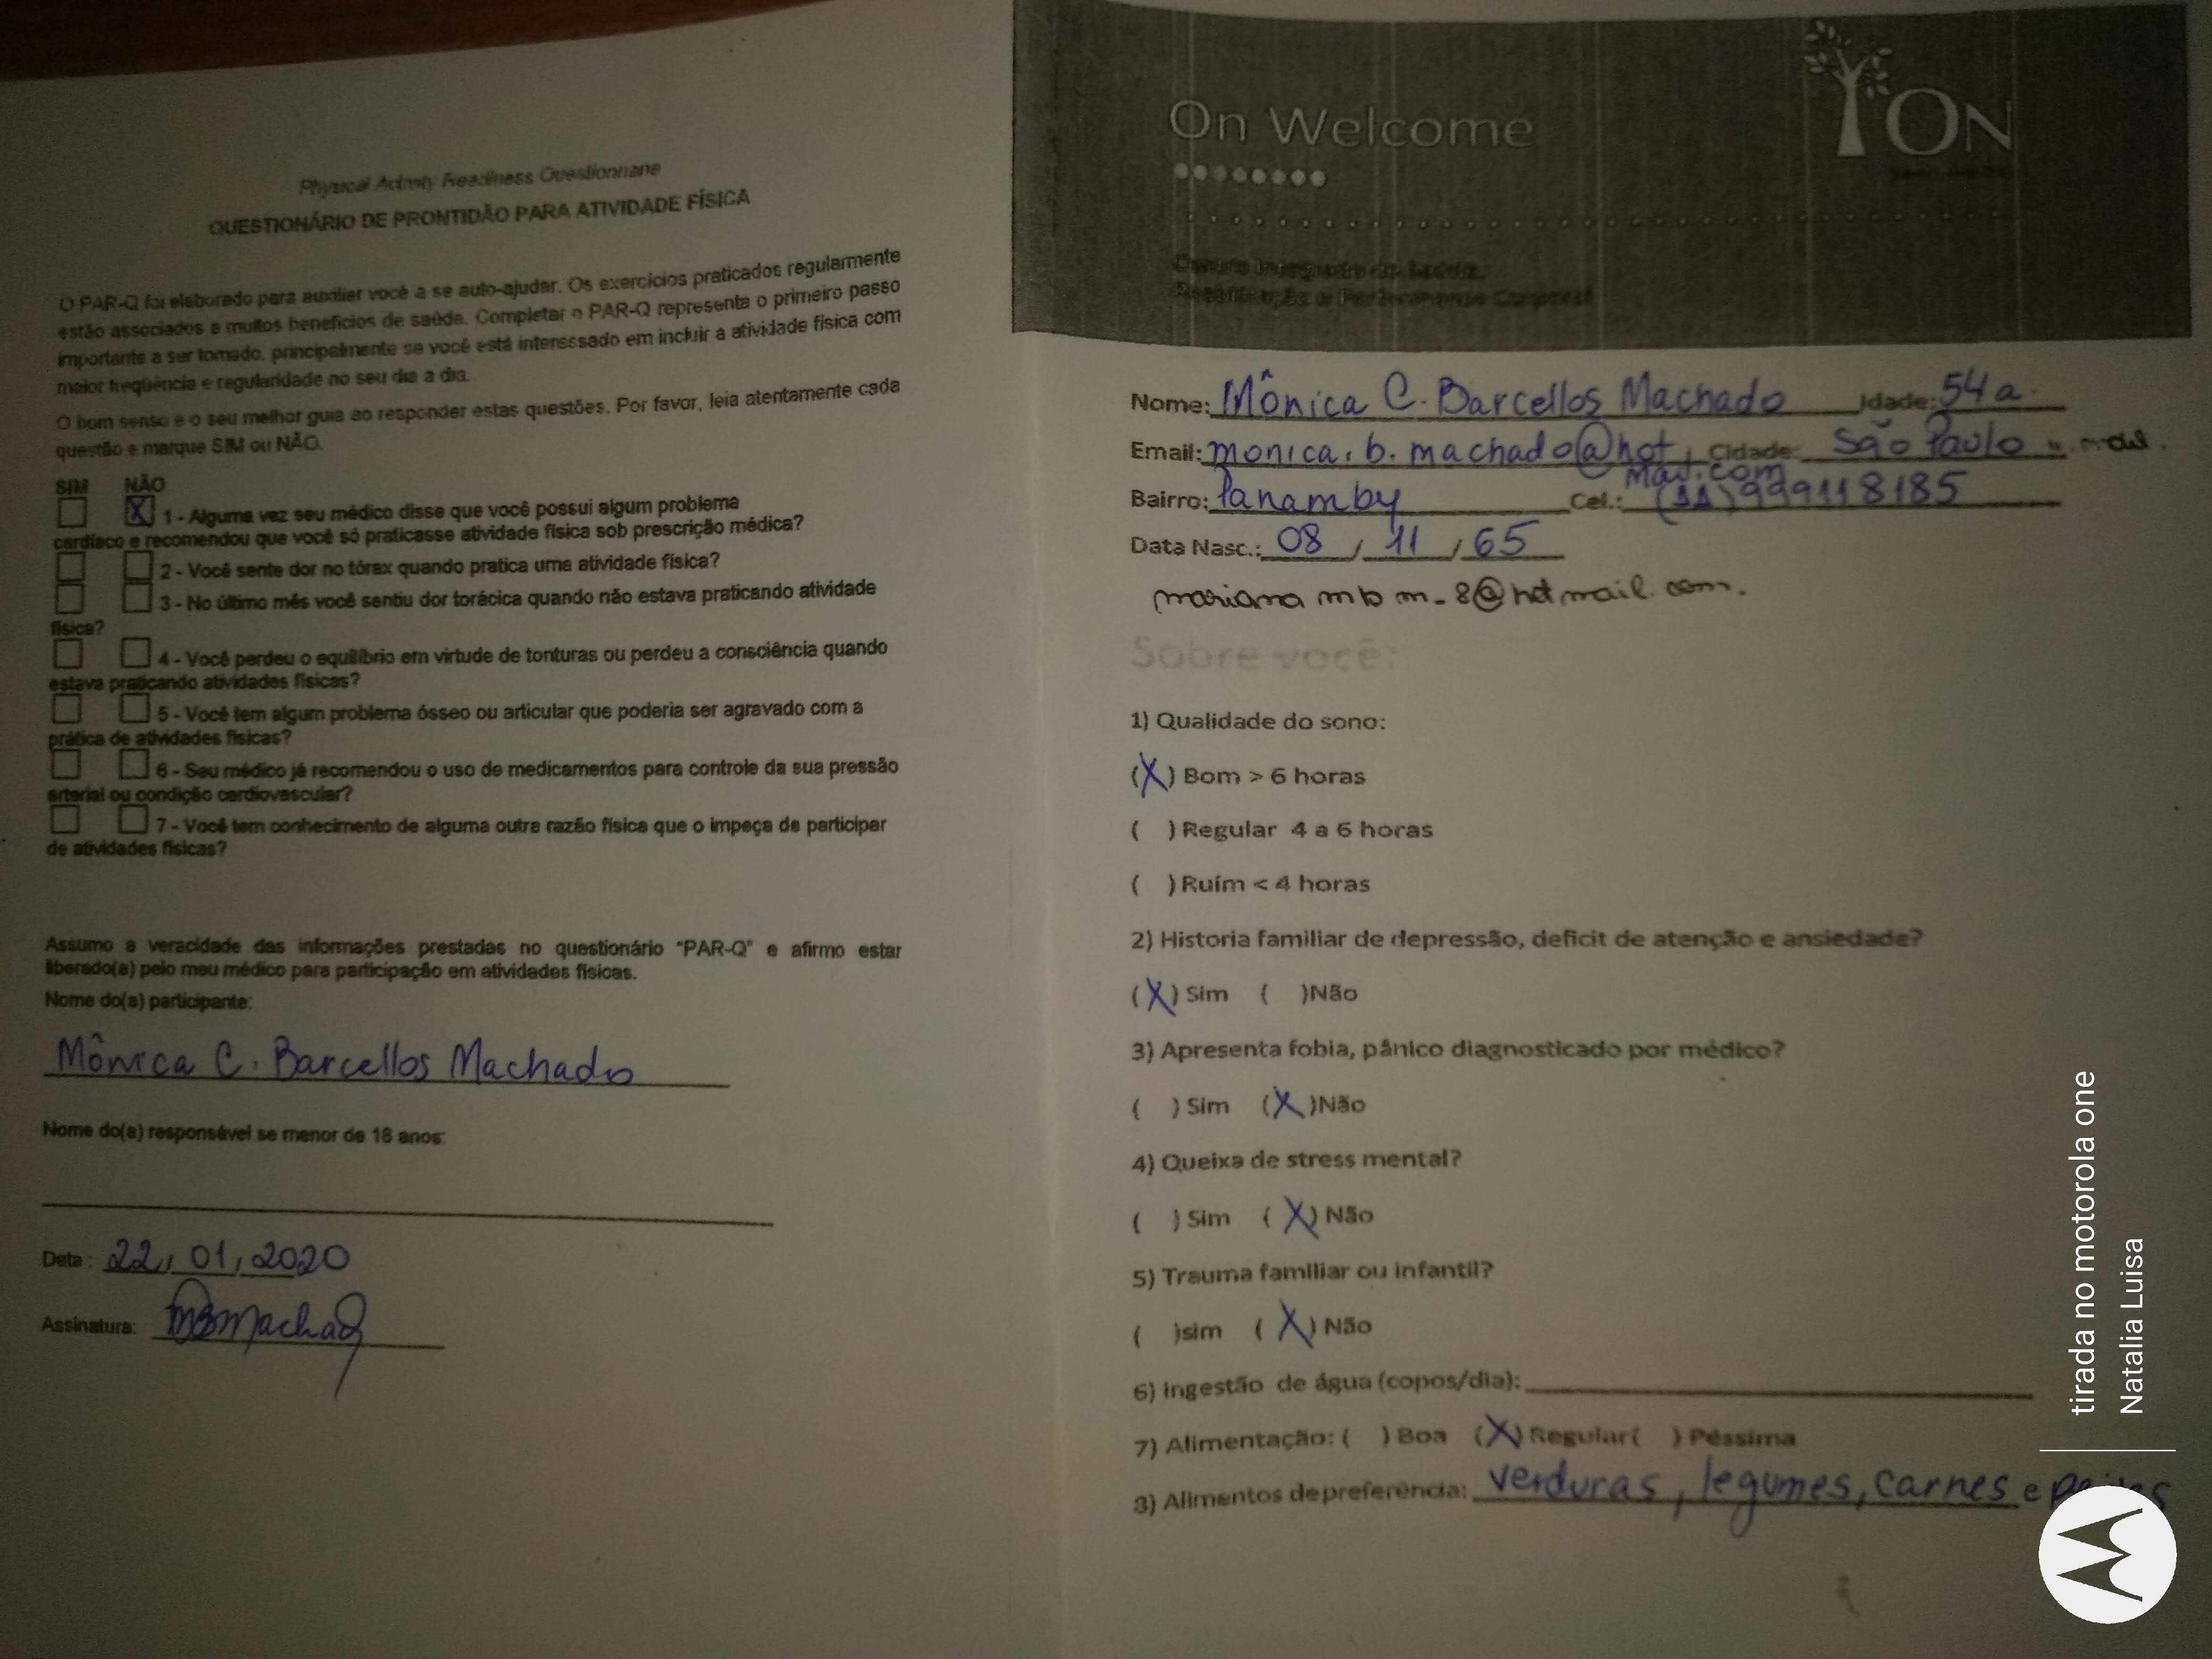 Physical Activity Readiness Questionnaire
QUESTIONÁRIO DE PRONTIDÃO PARA ATIVIDADE FÍSICA
O PAR-Q foi elaborado para auxiliar você a se auto-ajudar. Os exercícios praticados regularmente
estão associados a muitos benefícios de saúde. Completar o PAR-Q representa o primeiro passo
importante a ser tomado, principalmente se você está interessado em incluir a atividade física com
maior freqüência e regularidade no seu dia a dia.
O bom senso e o seu melhor guia ao responder estas questões. Por favor, leia atentamente cada
questão e marque SIM ou NÃO.
SIM NÃO
X 1 - Alguma vez seu médico disse que você possui algum problema
cardíaco e recomendou que você só praticasse atividade física sob prescrição médica?
2 - Você sente dor no tórax quando pratica uma atividade física?
3 - No último mês você sentiu dor torácica quando não estava praticando atividade
física?
4 - Você perdeu o equilíbrio em virtude de tonturas ou perdeu a consciência quando
estava praticando atividades físicas?
5 - Você tem algum problema ósseo ou articular que poderia ser agravado com a
prática de atividades físicas?
6 - Seu médico já recomendou o uso de medicamentos para controle da sua pressão
arterial ou condição cardiovascular?
7 - Você tem conhecimento de alguma outra razão física que o impeça de participar
de atividades físicas?
Assumo a veracidade das informações prestadas no questionário "PAR-Q" e afirmo estar
liberado(a) pelo meu médico para participação em atividades físicas.
Nome do(a) participante:
Mônica C. Barcellos Machado
Nome do(a) responsável se menor de 18 anos:
Data: 22/01/2020
Assinatura: MBMachado
On Welcome
ON
Nome: Mônica C. Barcellos Machado Idade: 54 a.
Email: monica.b.machado@hot Cidade: São Paulo
mail.com
Bairro: Panamby Cel.: (11) 999118185
Data Nasc.: 08 / 11 / 65
mariana mb m_8@hotmail.com.
Sobre você:
1) Qualidade do sono:
(X) Bom > 6 horas
( ) Regular 4 a 6 horas
( ) Ruím < 4 horas
2) Historia familiar de depressão, deficit de atenção e ansiedade?
(X) Sim ( )Não
3) Apresenta fobia, pânico diagnosticado por médico?
( ) Sim (X)Não
4) Queixa de stress mental?
( ) Sim (X) Não
5) Trauma familiar ou infantil?
( )sim (X) Não
6) Ingestão de água (copos/dia):
7) Alimentação: ( ) Boa (X) Regular( ) Péssima
8) Alimentos de preferência: verduras, legumes, carnes e
tirada no motorola one
Natalia Luisa